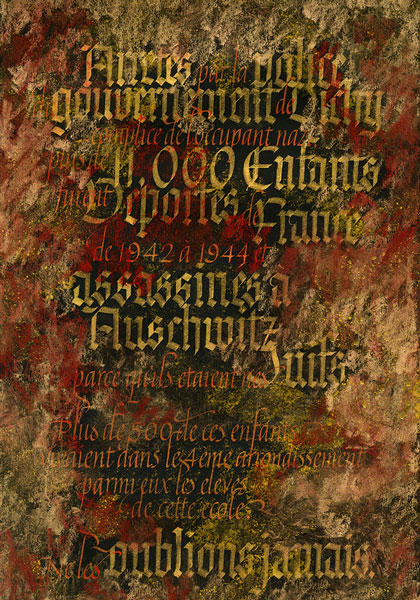 Arretés par la police
du gouvernement de Vichy
complice de l'occupant nazi
plus de 11.000 Enfants
furent Déportés de France
de 1942 à 1944 et
assassinés à
Auschwitz
parce qu'ils étaient nés Juifs.
Plus de 500 de ces enfants
vivaient dans le 4ème arrondissement
parmi eux les élèves
de cette école
Ne les oublions jamais.